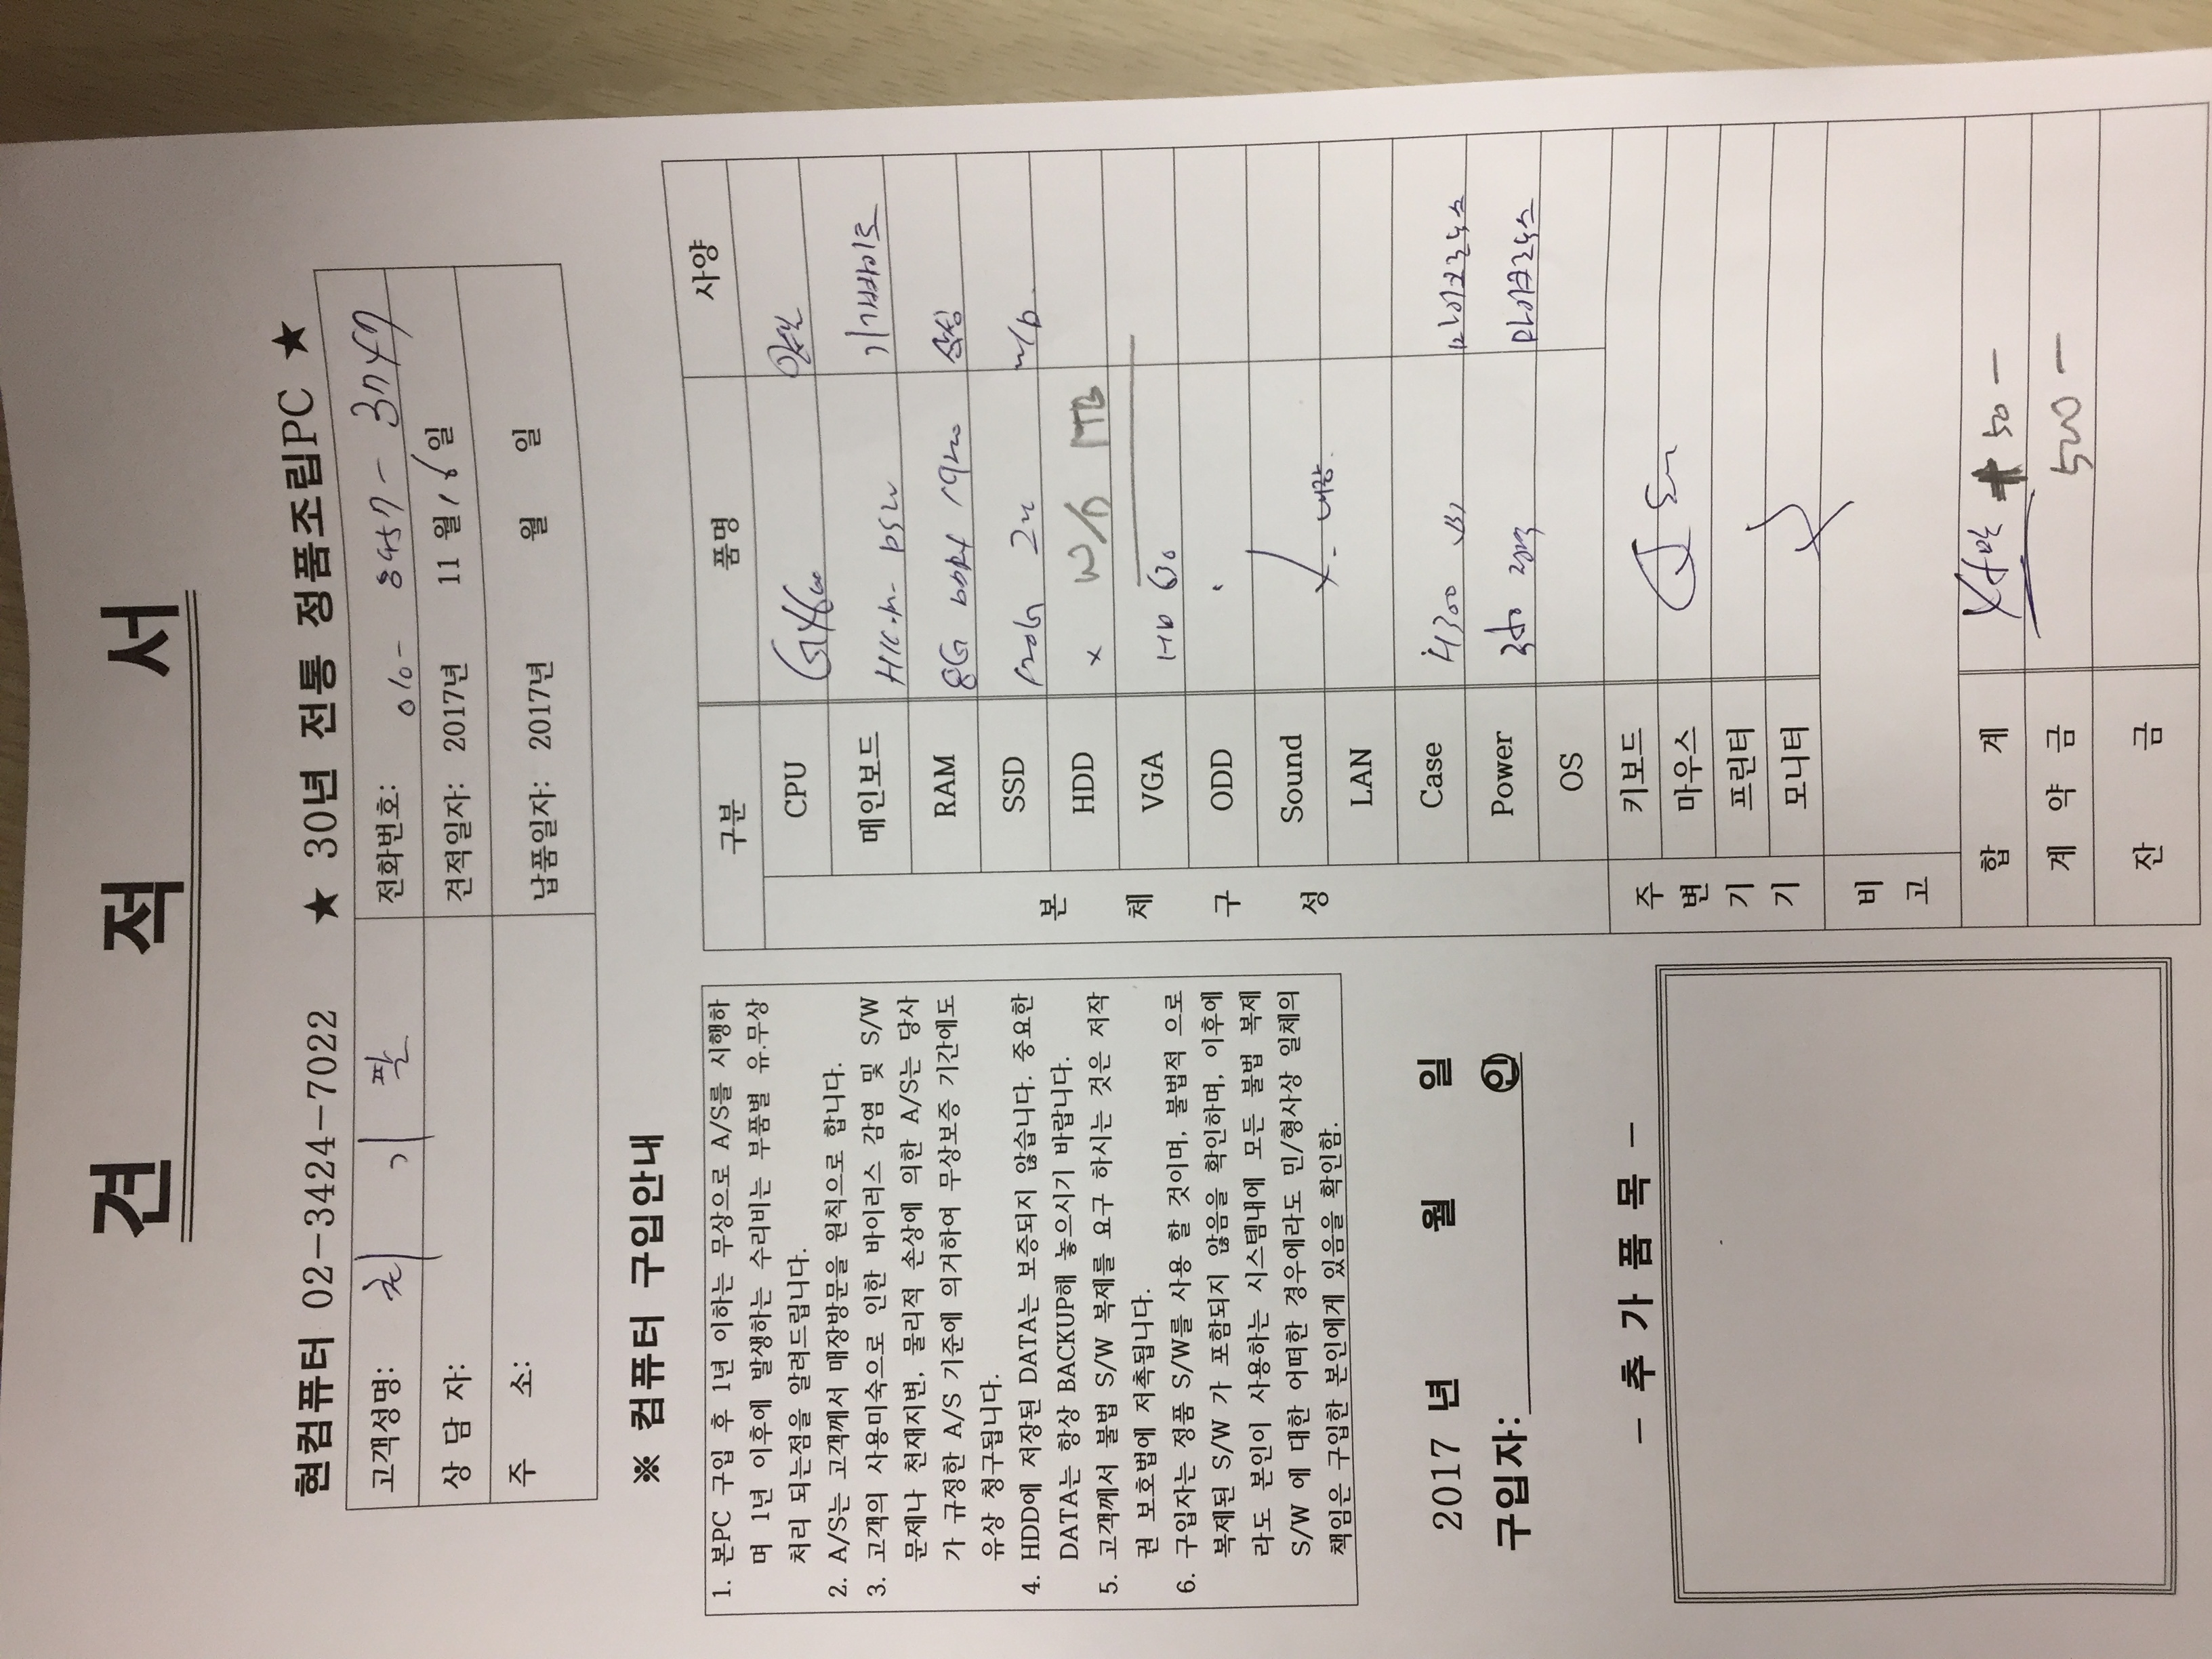 견 적 서
현컴퓨터 02-3424-7022 ★ 30년 전통 정품조립PC ★
고객성명: 최 기 팔 전화번호: 010- 8457-
상 담 자: 견적일자: 2017년 11 월 16 일
주 소: 납품일자: 2017년 월 일
※ 컴퓨터 구입안내
1. 본PC 구입 후 1년 이하는 무상으로 A/S를 시행하
며 1년 이후에 발생하는 수리비는 부품별 유.무상
처리 되는점을 알려드립니다.
2. A/S는 고객께서 매장방문을 원칙으로 합니다.
3. 고객의 사용미숙으로 인한 바이러스 감염 및 S/W
문제나 천재지변, 물리적 손상에 의한 A/S는 당사
가 규정한 A/S 기준에 의거하여 무상보증 기간에도
유상 청구됩니다.
4. HDD에 저장된 DATA는 보증되지 않습니다. 중요한
DATA는 항상 BACKUP해 놓으시기 바랍니다.
5. 고객께서 불법 S/W 복제를 요구 하시는 것은 저작
권 보호법에 저촉됩니다.
6. 구입자는 정품 S/W를 사용 할 것이며, 불법적 으로
복제된 S/W 가 포함되지 않음을 확인하며, 이후에
라도 본인이 사용하는 시스템내에 모든 불법 복제
S/W 에 대한 어떠한 경우에라도 민/형사상 일체의
책임은 구입한 본인에게 있음을 확인함.
2017 년 월 일
구입자: 인
- 추 가 품 목 -
구분 품명 사양
본 체 구 성
CPU G4600 인텔
메인보드 기가바이트
RAM 8G 19200 삼성
SSD
HDD x W/D 1TB
VGA HD 630
ODD
Sound 내장
LAN
Case 4300 마이크로닉스
Power 350 정격 마이크로닉스
OS
주 변 기 기
키보드
마우스
프린터
모니터
비 고
합 계 50 -
계 약 금 500 -
잔 금